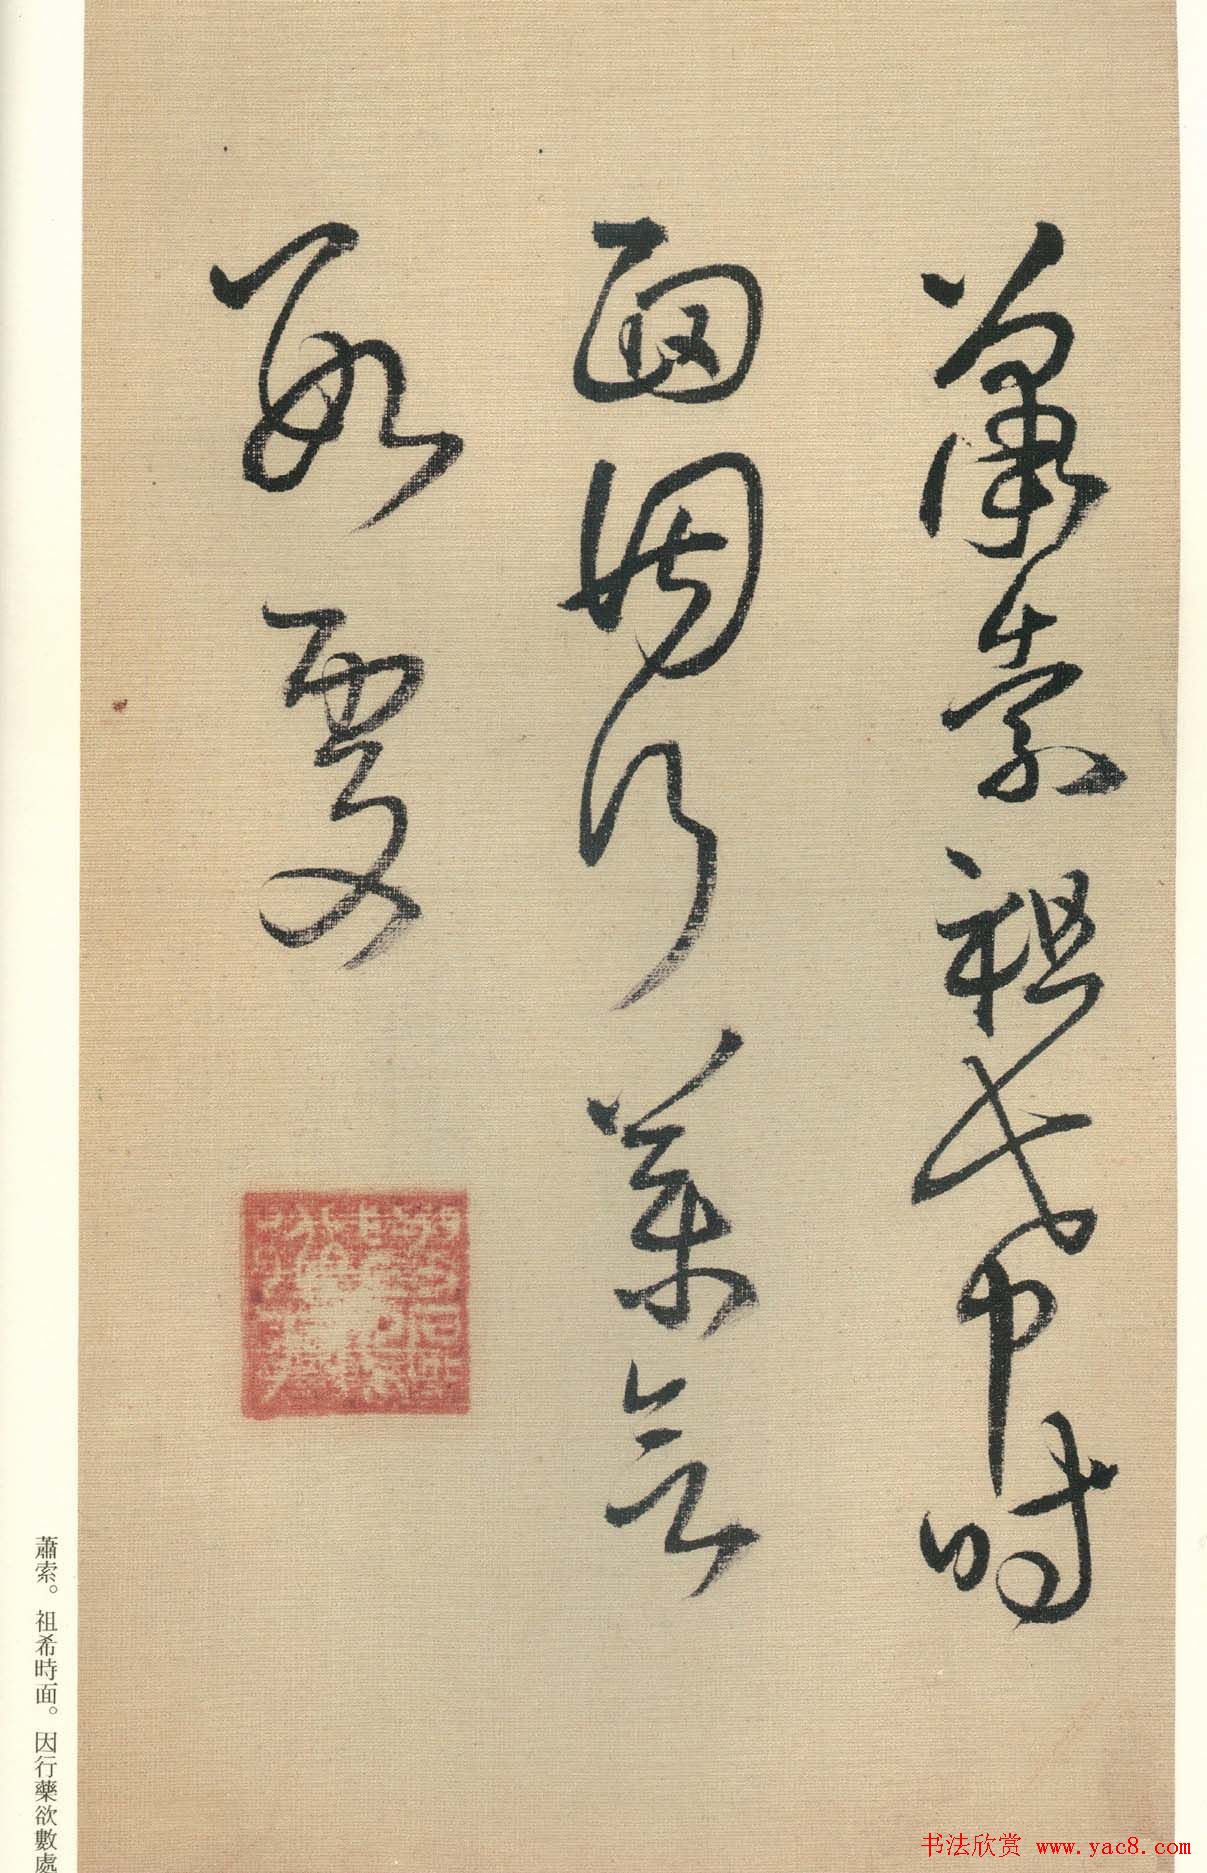 蕭索祖希時
面因行藥欲
數處
蕭索。祖希時面。因行藥欲數處
书法欣赏 www.yac8.com